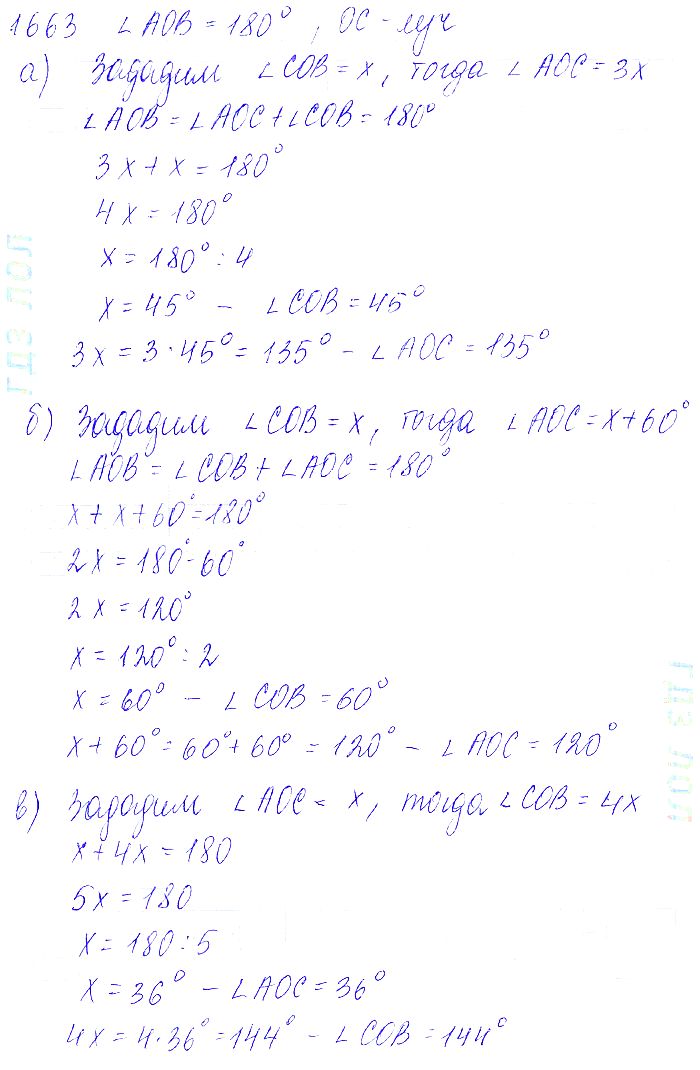 1663 ∠AOB = 180°, OC - луч
а) Зададим ∠COB = x, тогда ∠AOC = 3x
∠AOB = ∠AOC + ∠COB = 180°
3x + x = 180°
4x = 180°
x = 180° : 4
x = 45° - ∠COB = 45°
3x = 3 · 45° = 135° - ∠AOC = 135°
б) Зададим ∠COB = x, тогда ∠AOC = x + 60°
∠AOB = ∠COB + ∠AOC = 180°
x + x + 60° = 180°
2x = 180° - 60°
2x = 120°
x = 120° : 2
x = 60° - ∠COB = 60°
x + 60° = 60° + 60° = 120° - ∠AOC = 120°
в) Зададим ∠AOC = x, тогда ∠COB = 4x
x + 4x = 180
5x = 180
x = 180 : 5
x = 36° - ∠AOC = 36°
4x = 4 · 36° = 144° - ∠COB = 144°